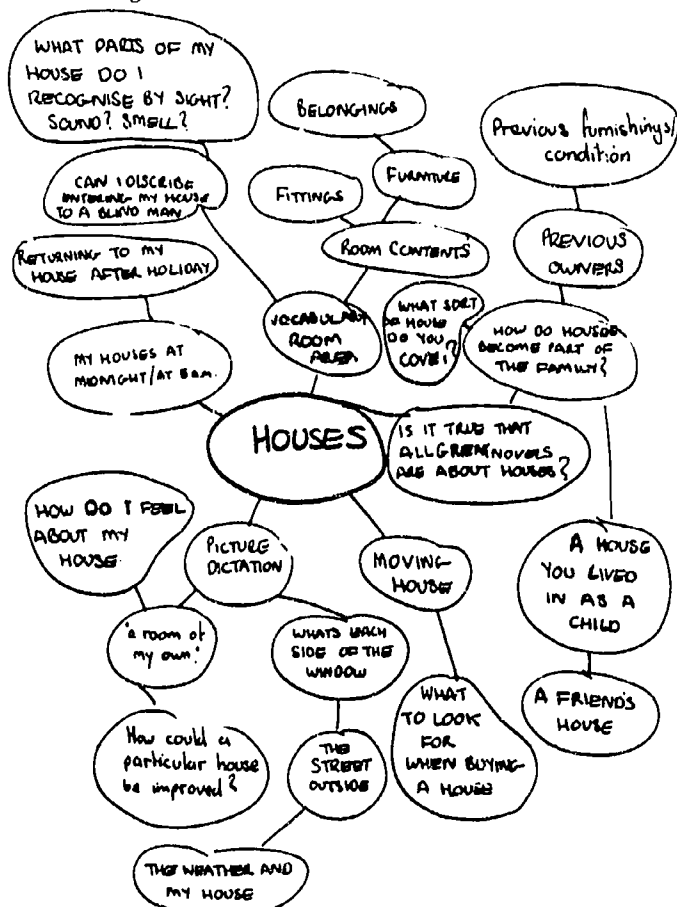 WHAT PARTS OF MY
HOUSE DO I
RECOGNISE BY SIGHT?
SOUND? SMELL?
BELONGINGS
Previous furnishings/
condition
CAN I DISCRIBE
ENTERING MY HOUSE
TO A BLIND MAN
FITTINGS
FURNITURE
RETURNING TO MY
HOUSE AFTER HOLIDAY
ROOM CONTENTS
PREVIOUS
OWNERS
MY HOUSES AT
MIDNIGHT/AT 5 a.m.
VOCABULARY
ROOM
AREA
WHAT SORT
OF HOUSE
DO YOU
COVET?
HOW DO HOUSES
BECOME PART OF
THE FAMILY?
HOUSES
IS IT TRUE THAT
ALL GREAT NOVELS
ARE ABOUT HOUSES?
HOW DO I FEEL
ABOUT MY
HOUSE
PICTURE
DICTATION
MOVING
HOUSE
A HOUSE
YOU LIVED
IN AS A
CHILD
'a room of
my own.'
WHATS EACH
SIDE OF THE
WINDOW
A FRIEND'S
HOUSE
How could a
particular house
be improved?
THE
STREET
OUTSIDE
WHAT
TO LOOK
FOR
WHEN BUYING
A HOUSE
THE WEATHER AND
MY HOUSE